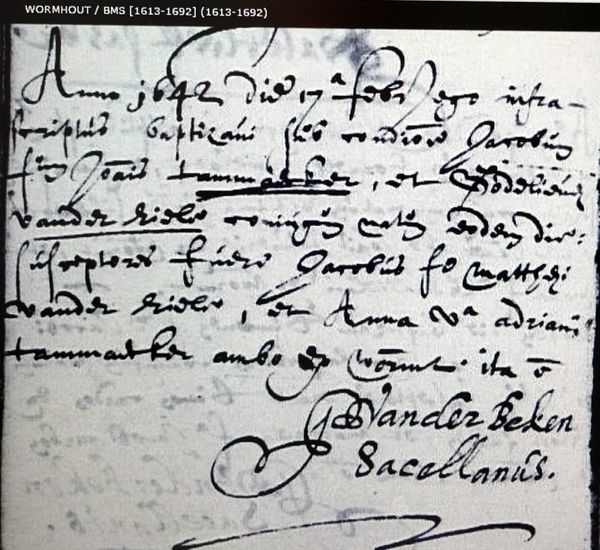 WORMHOUT / BMS [1613-1692] (1613-1692)
Anno 1642 die 17ª febr ego infra-
scriptus baptizavi sub condiōe Jacobum
fūm Joāis tammaeker, et
vander Rielle coniugū natū eodem die:
susceptores fuere Jacobus fs Matthei
vander Rielle, et Anna vª adriani
tammaeker ambo ex Wormt. ita ē
Vander Beken
Sacellanus.